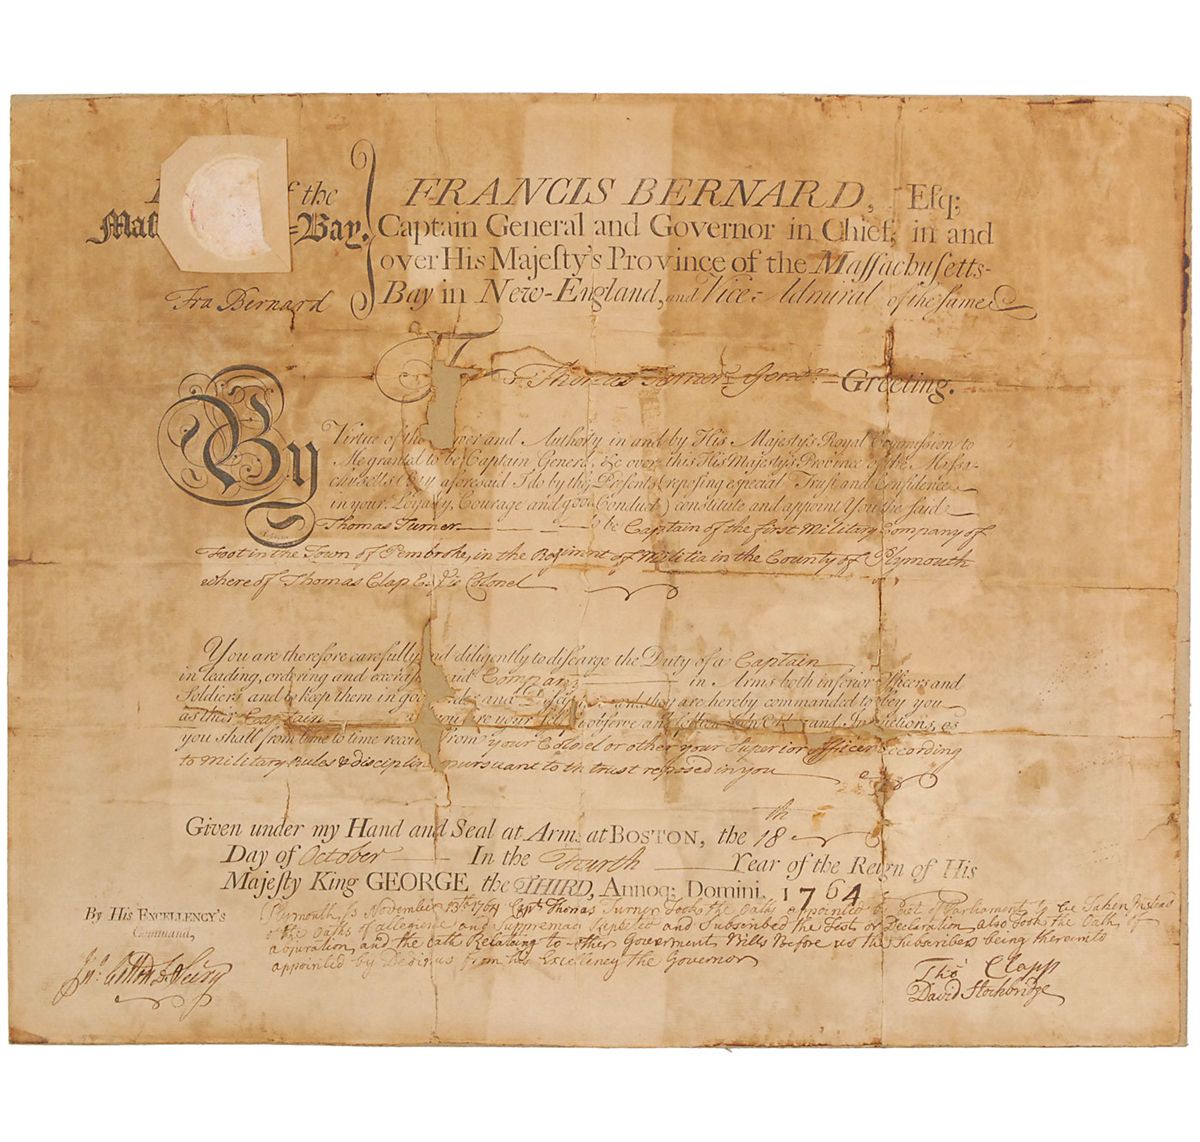 of the
Mas =Bay.
Fra Bernard
FRANCIS BERNARD, Esq;
Captain General and Governor in Chief, in and
over His Majesty's Province of the Massachusetts-
Bay in New-England, and Vice-Admiral of the same
To Thomas Turner Gent.n Greeting.
By Virtue of the Power and Authority in and by His Majesty's Royal Commission to
Me granted to be Captain General, &c over this His Majesty's Province of the Massa-
chusetts Bay aforesaid I do by these Presents (reposing especial Trust and Confidence
in your Loyalty, Courage and good Conduct) constitute and appoint You the said
Thomas Turner to be Captain of the first Military Company of
Foot in the Town of Pembroke, in the Regiment of Militia in the County of Plymouth
where of Thomas Clap Esq. is Colonel
You are therefore carefully and diligently to discharge the Duty of a Captain
in leading, ordering and exercising said Company in Arms both inferior Officers and
Soldiers and to keep them in good Order and Discipline and they are hereby commanded to obey you
as their Captain and you are yourself to observe and follow such Orders and Instructions, as
you shall from time to time receive from your Colonel or other your Superior officers according
to military Rules & discipline pursuant to the trust reposed in you
Given under my Hand and Seal at Arms at BOSTON, the 18th
Day of October In the Fourth Year of the Reign of His
Majesty King GEORGE the THIRD, Annoq; Domini, 1764
By His EXCELLENCY'S
Command,
Jno. Cotton D. Secry
Plymouth, ss November 13th 1764 Capt. Thomas Turner Took the Oath appointed by Act of Parliament to be Taken Instead
of the Oaths of allegiance and Supremacy Repeted and Subscribed the Test or Declaration also took the Oath of
abjuration and the Oath Relating to other Goverment Bills Before us the Subscribers being thereunto
appointed by Dedimus from his Excellency the Governor
Thos Clapp
David Stockbridge